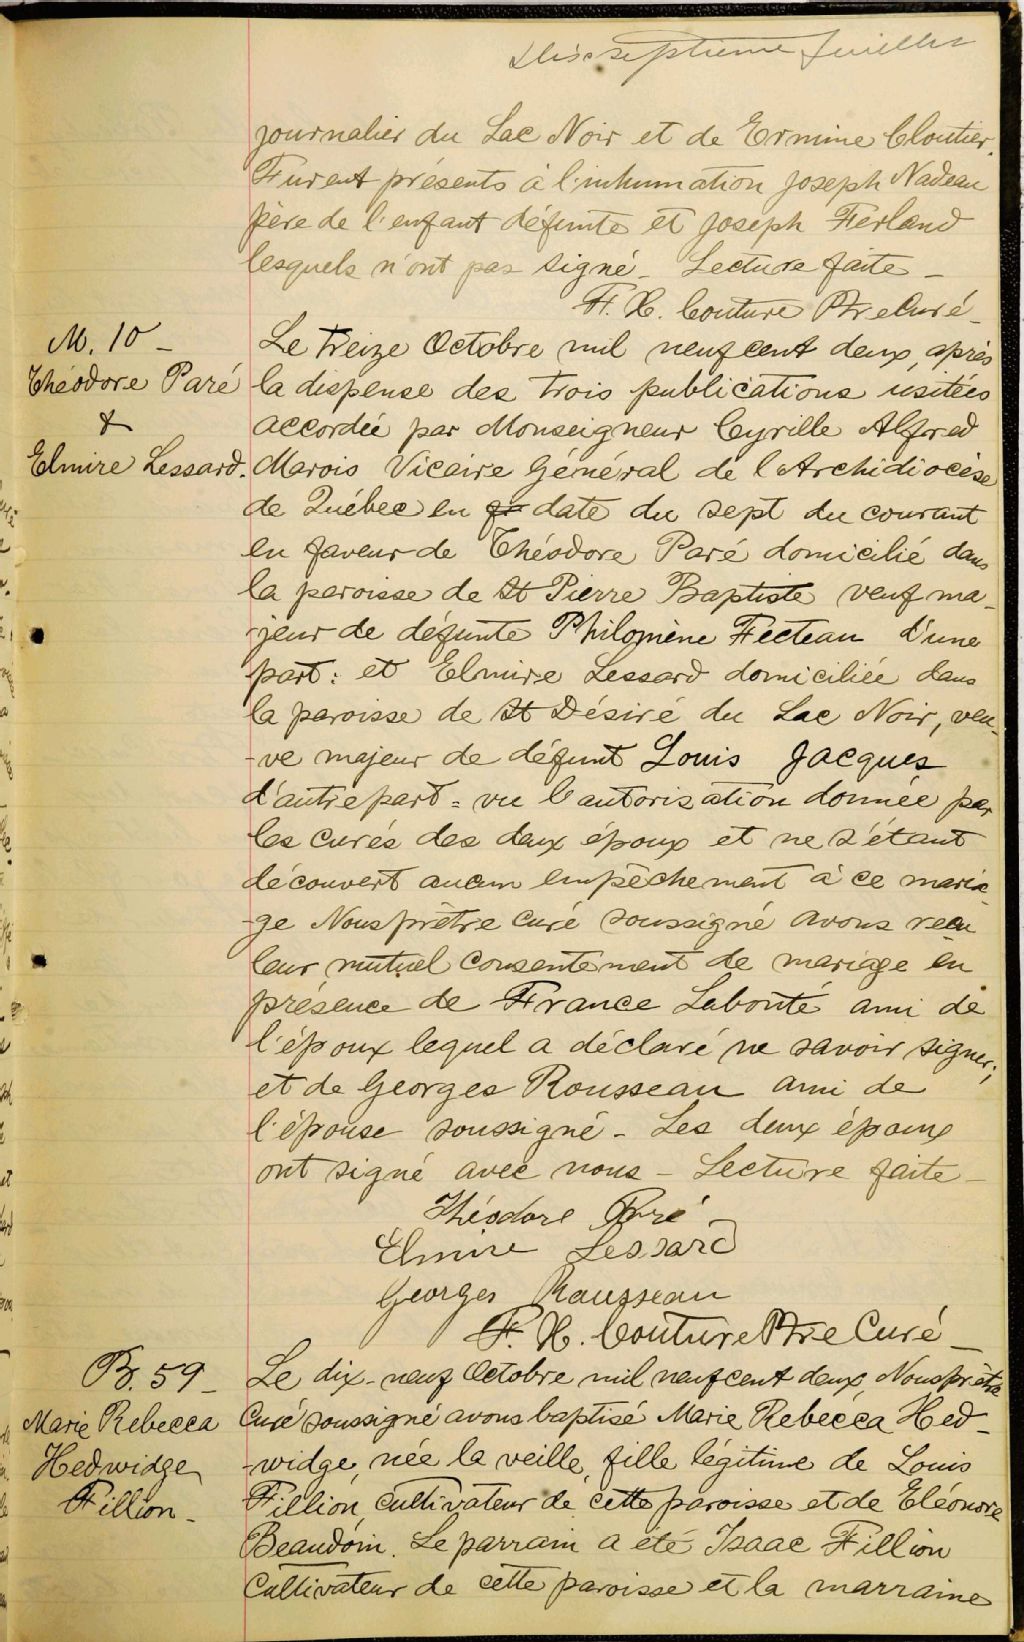 Dix septième feuillet
journalier du Lac Noir et de Ermine Cloutier.
Furent présents à l'inhumation Joseph Nadeau
père de l'enfant défunte et Joseph Ferland
lesquels n'ont pas signé - Lecture faite -
F. X. Couture Ptre Curé -
M. 10 -
Théodore Paré
&
Elmire Lessard.
Le treize Octobre mil neuf cent deux, après
la dispense des trois publications usitées
accordée par Monseigneur Cyrille Alfred
Marois Vicaire Général de l'Archidiocèse
de Québec en date du sept du courant
en faveur de Théodore Paré domicilié dans
la paroisse de St Pierre Baptiste veuf ma-
-jeur de défunte Philomène Fecteau d'une
part : et Elmire Lessard domiciliée dans
la paroisse de St Désiré du Lac Noir, veu-
-ve majeur de défunt Louis Jacques
d'autre part = vu l'autorisation donnée par
les curés des deux époux et ne s'étant
découvert aucun empêchement à ce maria-
-ge Nous prêtre curé soussigné avons reçu
leur mutuel consentement de mariage en
présence de France Labonté ami de
l'époux lequel a déclaré ne savoir signer ;
et de Georges Rousseau ami de
l'épouse soussigné - Les deux époux
ont signé avec nous - Lecture faite -
Théodore Paré
Elmire Lessard
Georges Rousseau
F. X. Couture Ptre Curé -
B. 59 -
Marie Rebecca
Hedwidge
Fillion -
Le dix-neuf Octobre mil neuf cent deux, Nous prêtre
Curé soussigné avons baptisé Marie Rebecca Hed-
-widge, née la veille, fille légitime de Louis
Fillion, cultivateur de cette paroisse et de Eléonore
Beaudoin. Le parrain a été Isaac Fillion
Cultivateur de cette paroisse et la marraine